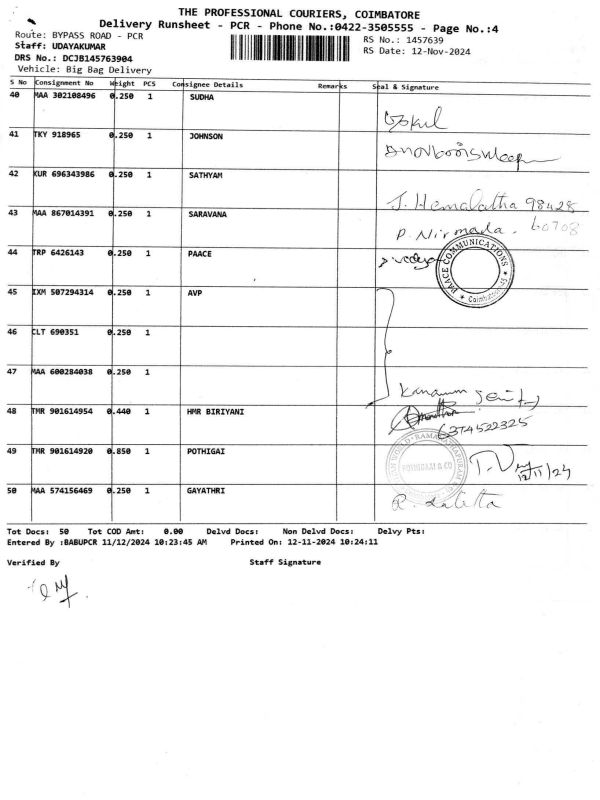 THE PROFESSIONAL COURIERS, COIMBATORE
Delivery Runsheet - PCR - Phone No.:0422-3505555 - Page No.:4
Route: BYPASS ROAD - PCR
RS No.: 1457639
Staff: UDAYAKUMAR
RS Date: 12-Nov-2024
DRS No.: DCJB145763904
Vehicle: Big Bag Delivery
S No Consignment No Weight PCS Consignee Details Remarks Seal & Signature
40 MAA 302108496 0.250 1 SUDHA
Gokul
41 TKY 918965 0.250 1 JOHNSON
42 KUR 696343986 0.250 1 SATHYAM
J. Hemalatha 98428
43 MAA 867014391 0.250 1 SARAVANA
60708
P. Nirmada.
44 TRP 6426143 0.250 1 PAACE
PAACE COMMUNICATIONS
Coimbatore
45 IXM 507294314 0.250 1 AVP
46 CLT 690351 0.250 1
47 MAA 600284038 0.250 1
48 TMR 901614954 0.440 1 HMR BIRIYANI
6374522325
49 TMR 901614920 0.850 1 POTHIGAI
12/11/24
50 MAA 574156469 0.250 1 GAYATHRI
R. Lalitha
Tot Docs: 50 Tot COD Amt: 0.00 Delvd Docs: Non Delvd Docs: Delvy Pts:
Entered By :BABUPCR 11/12/2024 10:23:45 AM Printed On: 12-11-2024 10:24:11
Verified By Staff Signature